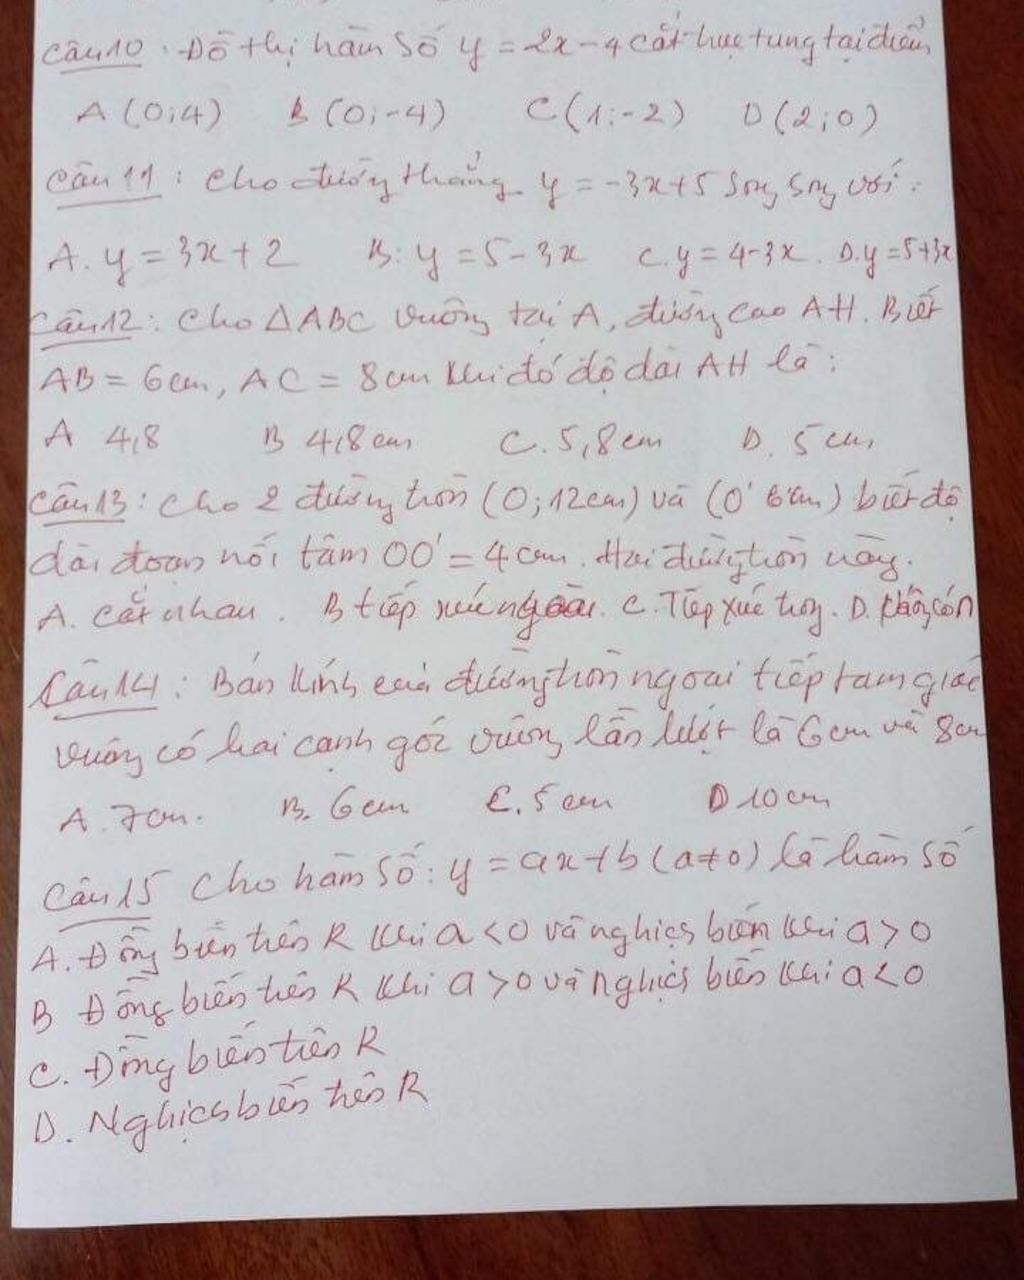 Câu 10: Đồ thị hàm số y = 2x - 4 cắt trục tung tại điểm
A (0;4) B (0;-4) C (1;-2) D (2;0)
Câu 11: Cho đường thẳng y = -3x+5 song song với:
A. y = 3x + 2 B: y = 5 - 3x C. y = 4-3x. D. y = 5+3x
Câu 12: Cho ΔABC vuông tại A, đường cao AH. Biết
AB = 6cm, AC = 8cm khi đó độ dài AH là:
A 4,8 B 4,8 cm C. 5,8 cm D. 5 cm
Câu 13: Cho 2 đường tròn (O; 12cm) và (O' 6cm) biết độ
dài đoạn nối tâm OO' = 4cm. Hai đường tròn này.
A. Cắt nhau. B tiếp xúc ngoài. C. Tiếp xúc trong. D. không có
Câu 14: Bán kính của đường tròn ngoại tiếp tam giác
vuông có hai cạnh góc vuông lần lượt là 6cm và 8cm
A. 7cm. B. 6cm C. 5cm D 10cm
Câu 15 Cho hàm số: y = ax+b (a≠0) là hàm số
A. Đồng biến trên R khi a < 0 và nghịch biến khi a > 0
B Đồng biến trên R khi a > 0 và nghịch biến khi a < 0
C. Đồng biến trên R
D. Nghịch biến trên R